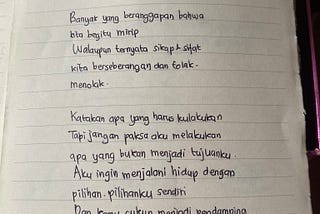 Banyak yang beranggapan bahwa
kita begitu mirip
Walaupun ternyata sikap & sifat
kita berseberangan dan tolak.
menolak.
Katakan apa yang harus kulakukan
Tapi jangan paksa aku melakukan
apa yang bukan menjadi tujuanku.
Aku ingin menjalani hidup dengan
pilihan. pilihanku sendiri
Dan kamu cukup menjadi pendamping